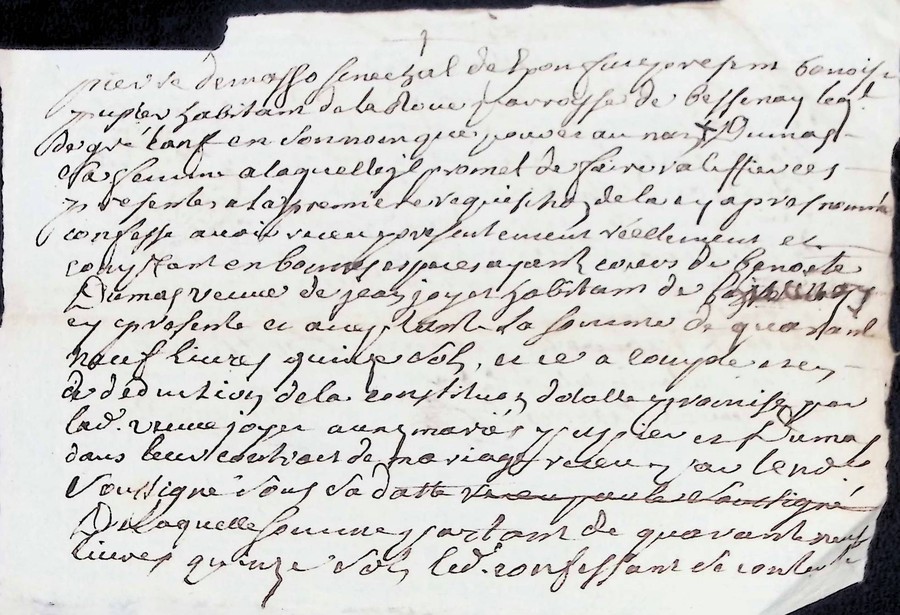 pierre demasso senechal de lyon fut present benoist
pupier habitant de la Roue parroisse de bessenay leql.
de gré tant en son nom que pouvoir au nom Dumas
sa femme a laquelle jl promet de faire ratiffier ces
presentes a la premiere requisition de la cy apres nommée
confesse avoir receu presentement reellement et
comptant en bonnes espaces ayant cours de benoite
Dumas veuve de jean joyet habitant de
cy presente et acceptante la somme de quarante
neuf livres quinze sols, et ce a compte et en
de deduction de la constitution dotalle promise par
lad. veuve joyet auxd mariés pupier et Dumas
dans leur contract de mariage receu par le no.re
soussigné sous sa datte receu par le soussigné
De laquelle somme partant de quarante neuf
livres quinze sols led. confessant se contente